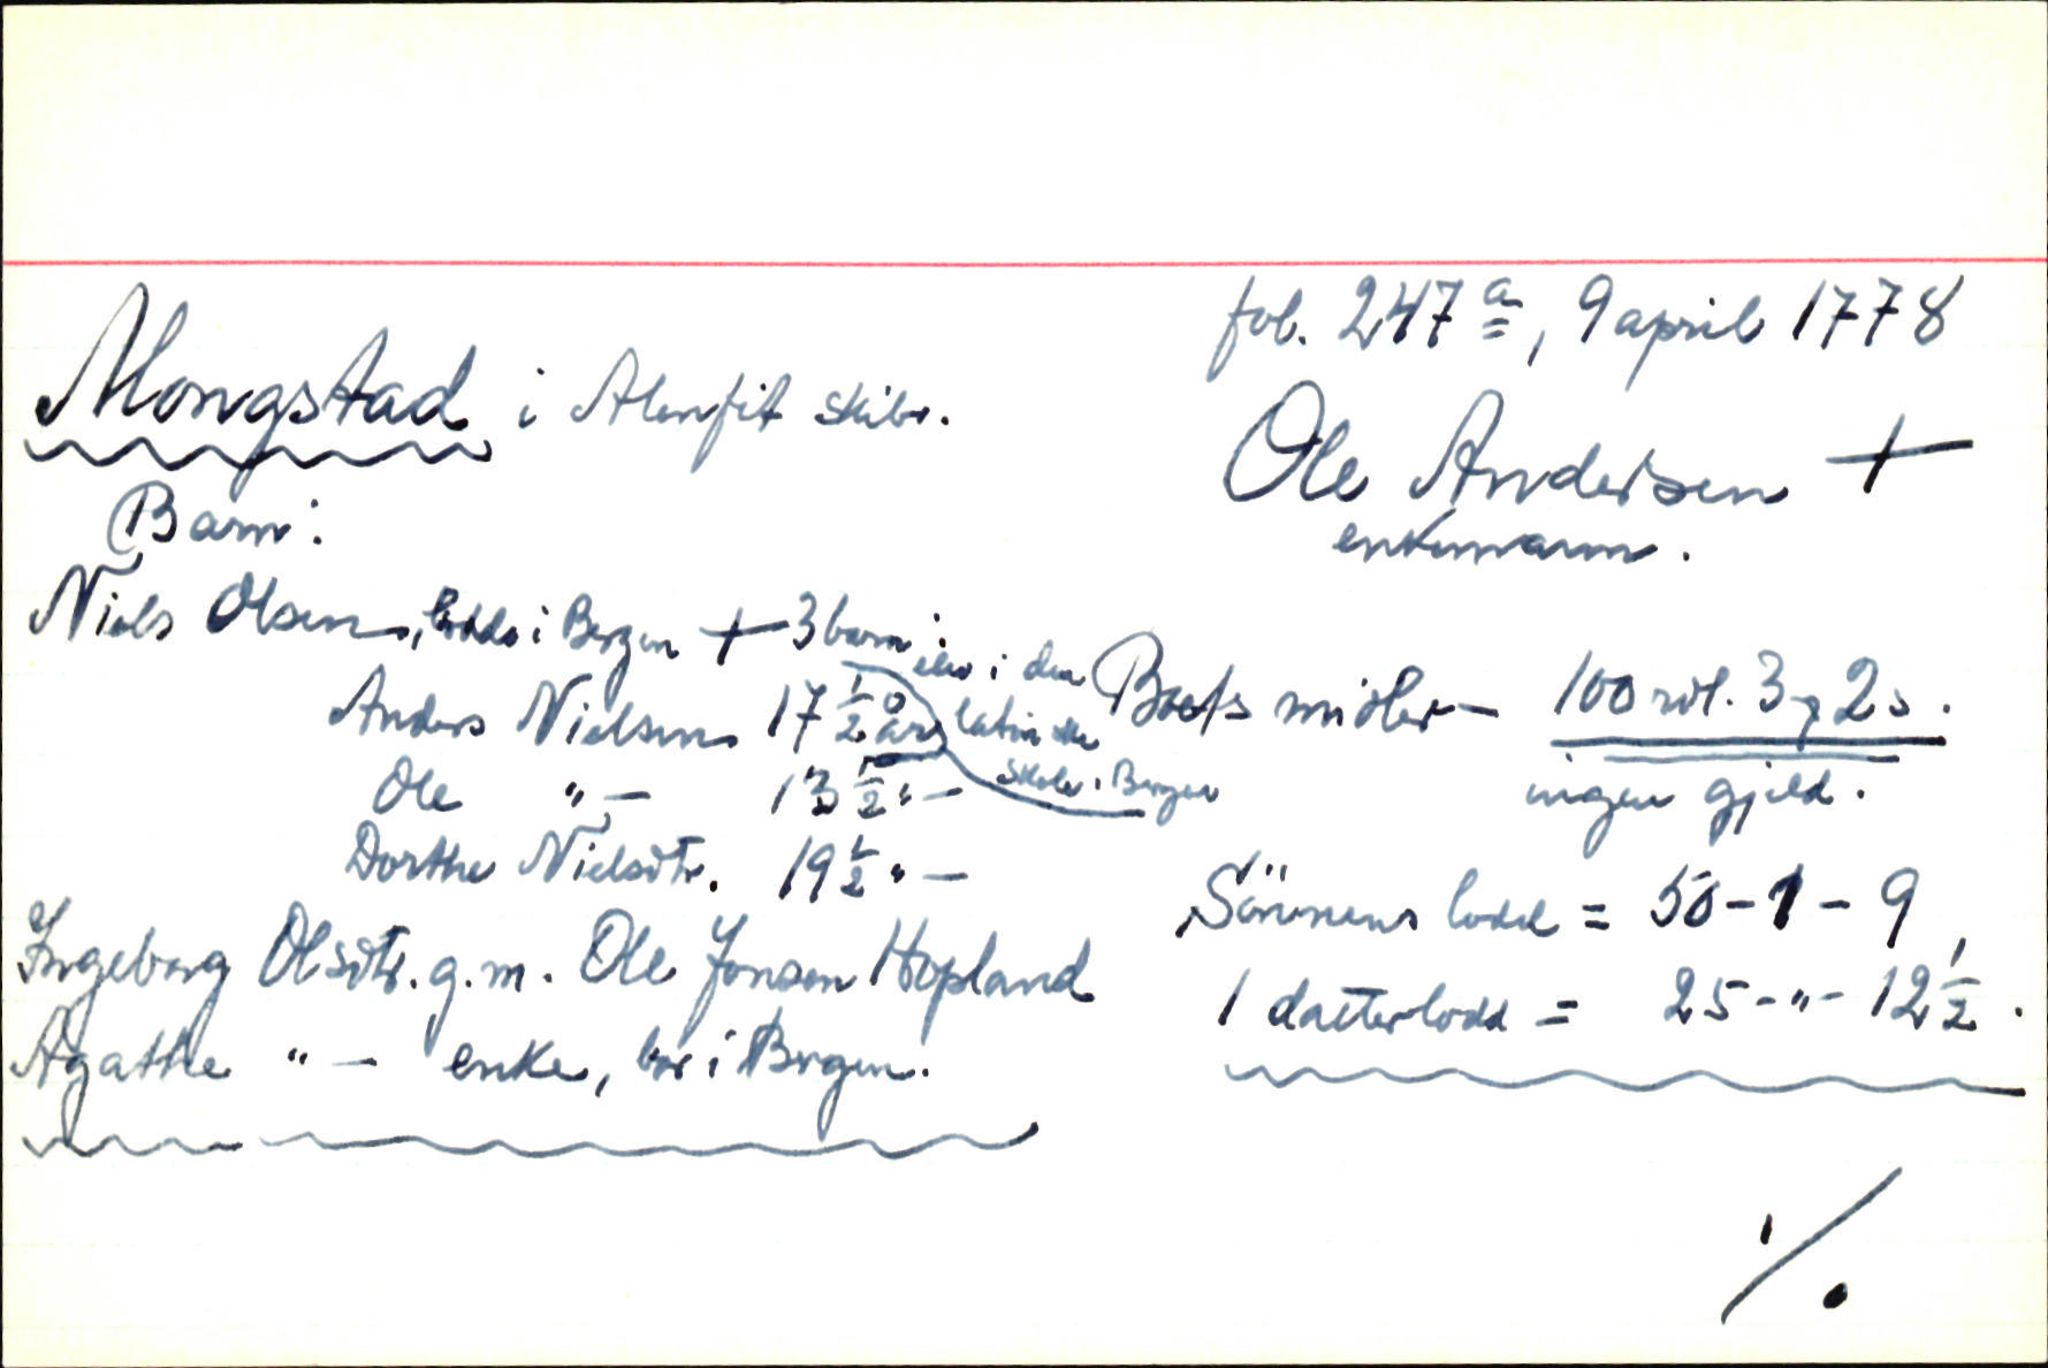 fol. 247 a, 9 april 1778
Mongstad i Alenfit skibr.
Ole Andersen +
enkemann.
Barn:
Niels Olsen, bodde i Bergen + 3 barn:
Anders Nielsen 17 1/2 år elev i den latinske skole i Bergen
Ole "- 13 1/2 "-
Dorthe Nielsdtr. 19 1/2 "-
Ingeborg Olsdtr. g.m. Ole Jonson Hopland
Agathe "- enke, bor i Bergen.
Boets midler - 100 rdl. 3 2 s.
ingen gjeld.
Sönnens lodd = 50-1-9,
1 datterlodd = 25-"-12 1/2.